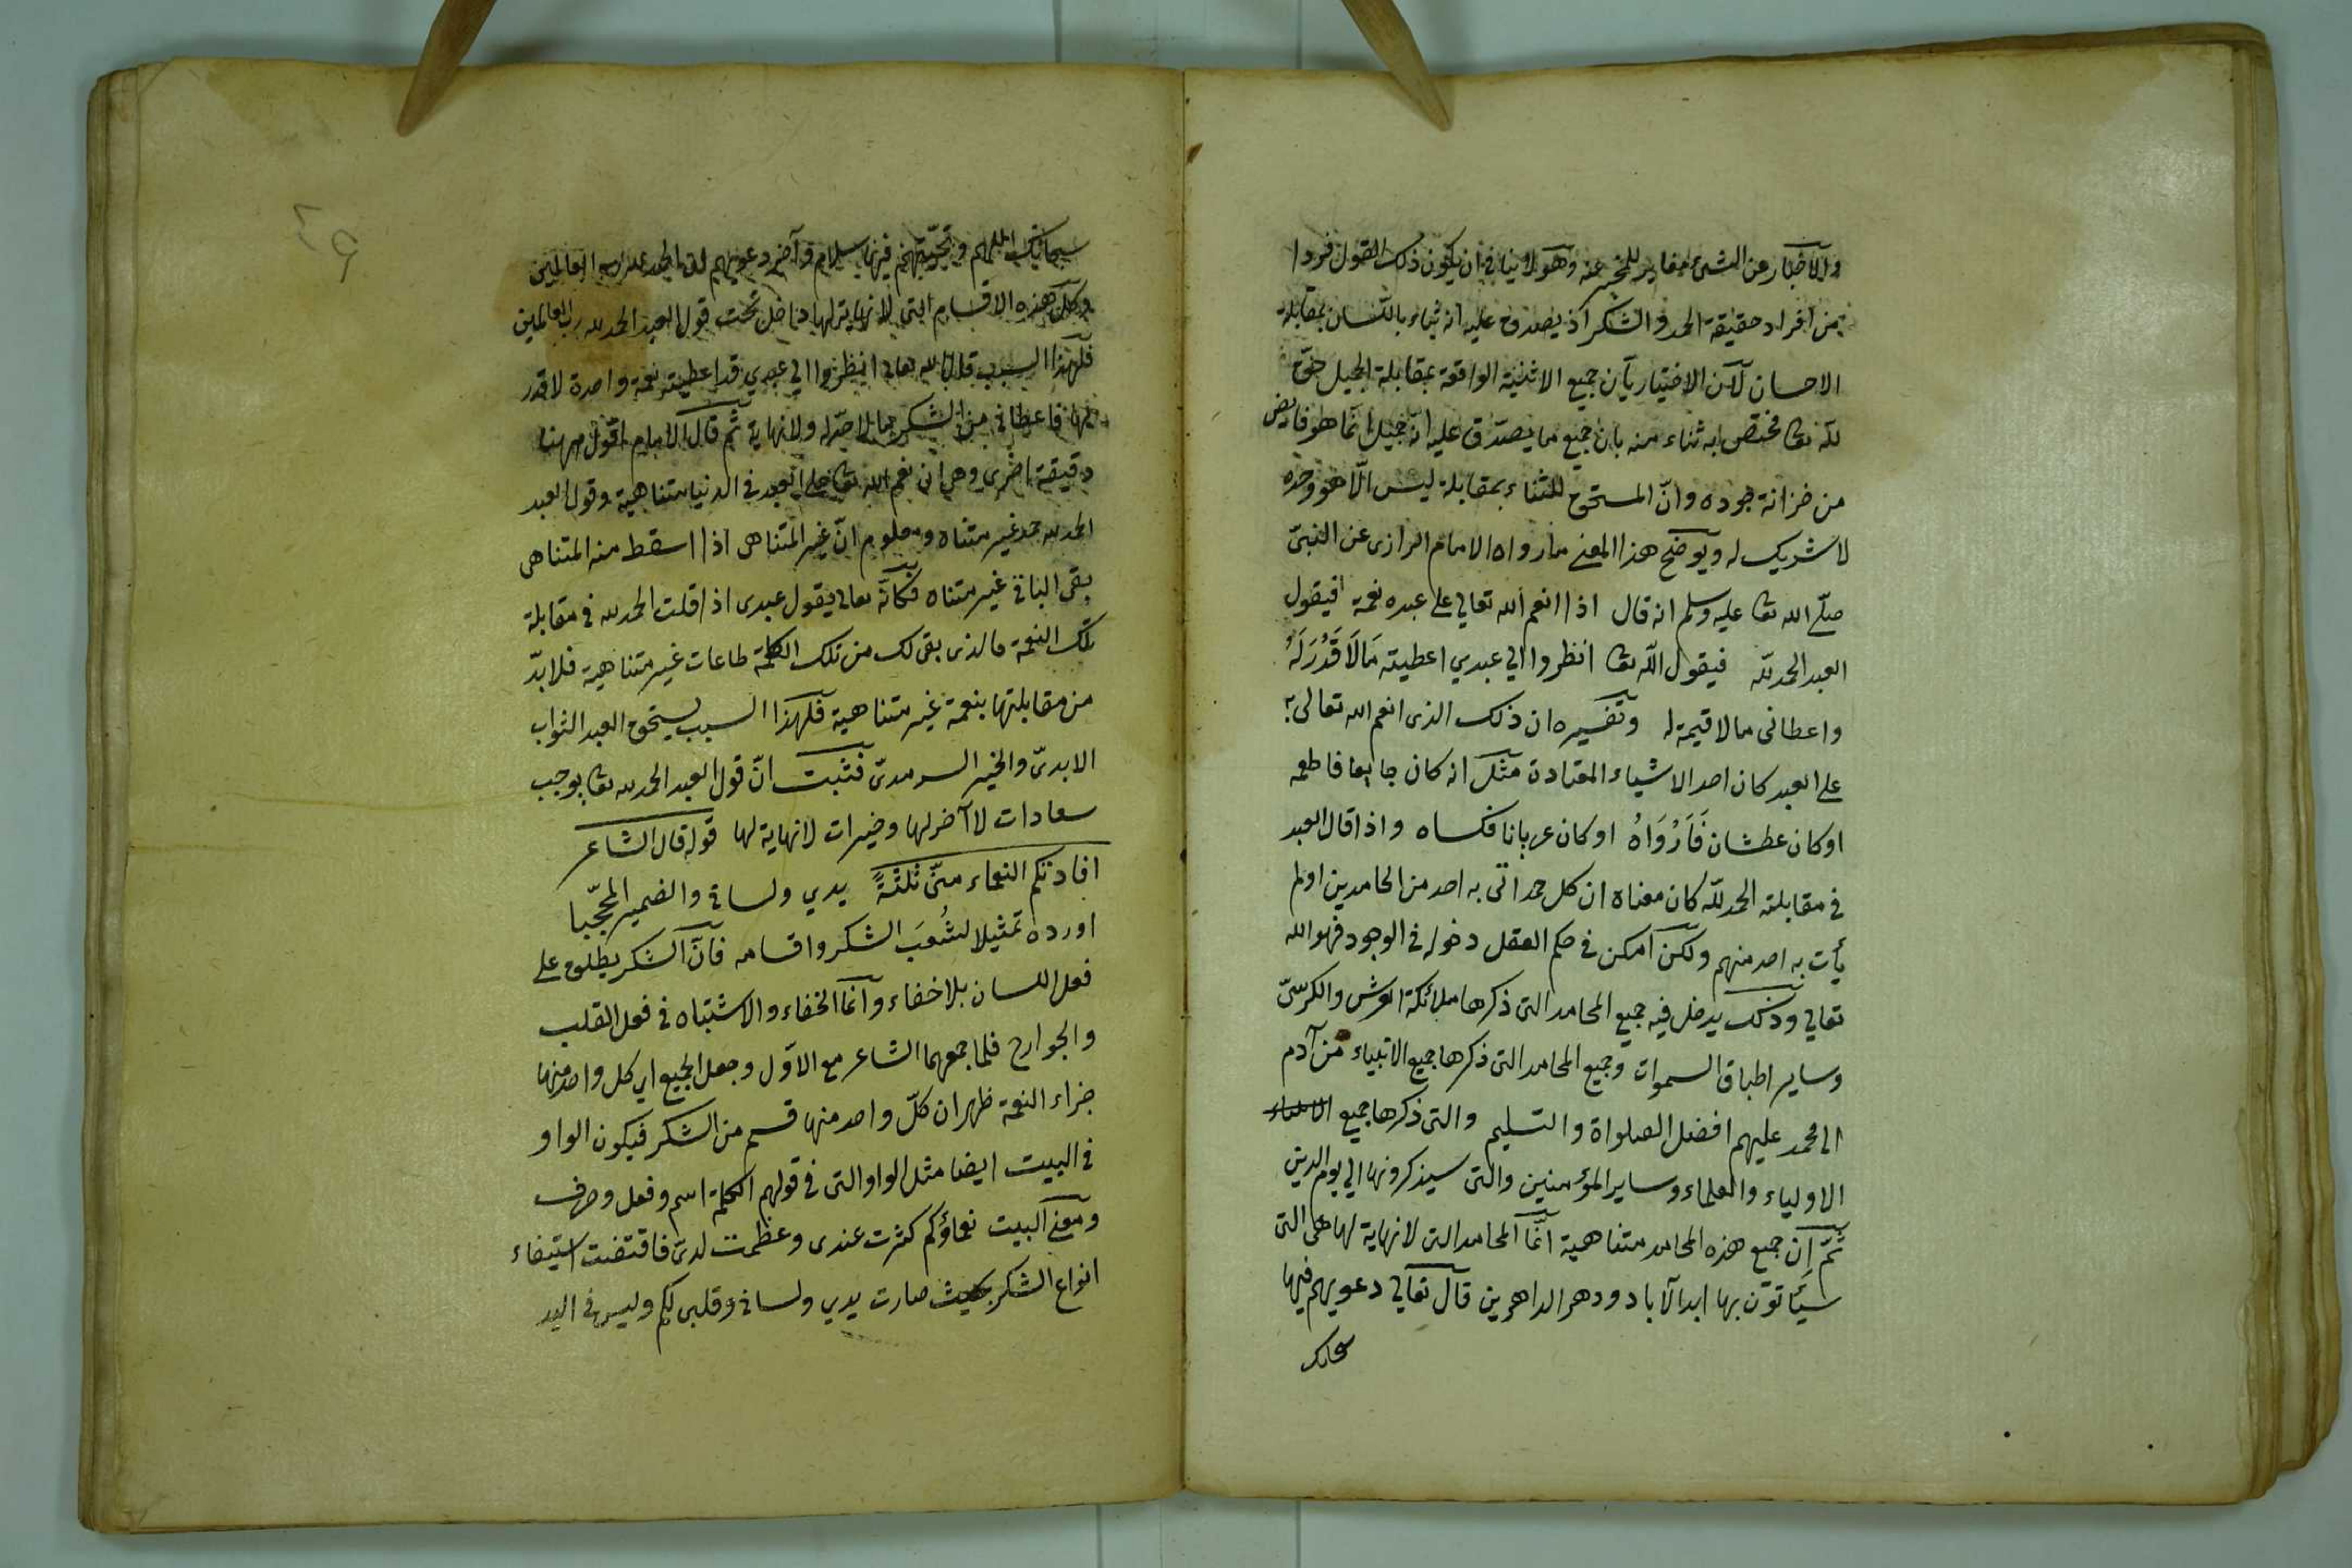 والاخبار عن الشئ مغاير للمخبر عنه وهو لا ينافى ان يكون ذلك القول فردا
من افراد حقيقة الحمد والشكر اذ يصدق عليه انه ثناء باللسان بمقابلة
الاحسان لان الاختيار بان جميع الاثنية الواقعة بمقابلة الجميل حق
لله تعا مختص به ثناء منه بان جميع ما يصدق عليه انه جميل انما هو فايض
من خزانة جوده وانّ المستحق للثناء بمقابلة ليس الّا هو وحده
لا شريك له ويوضح هذا المعنى ما رواه الامام الرازى عن النبىّ
صلّى الله تعا عليه وسلم انه قال اذا انعم الله تعالى على عبده نعمة فيقول
العبد الحمد لله فيقول الله تعا انظروا الى عبدي اعطيته مَالاَ قَدْرَ لَهُ
واعطانى مالا قيمة له وتفسيره ان ذلك الذى انعم الله تعالى به
على العبد كان احد الاشياء المعتادة مثل انه كان جايعا فاطعمه
اوكان عطشان فَاَرْوَاهُ اوكان عريانا فكساه واذا قال العبد
فى مقابلته الحمد لله كان معناه ان كل حمد اتى به احد من الحامدين اولم
يأت به احد منهم ولكن امكن فى حكم العقل دخوله فى الوجود فهو لله
تعالى وذلك يدخل فيه جميع المحامد التى ذكرها ملائكة العرش والكرسىّ
وساير اطباق السموات وجميع المحامد التى ذكرها جميع الانبياء من آدم
الى محمد عليهم افضل الصلواة والتسليم والتى ذكرها جميع
الاولياء والعلماء وساير المؤمنين والتى سيذكرونها الى يوم الدين
ثمّ انّ جميع هذه المحامد متناهية انّما المحامد التى لا نهاية لها هى التى
سيَأتون بها ابد الآباد ودهر الداهرين قال تعالى دعويهم فيها
سبحانك
سبحانك اللهم وتحيّتهم فيها سلام وآخر دعويهم ان الحمد لله رب العالمين
وكل هذه الاقسام التى لا نهاية لها داخل تحت قول العبد الحمد لله رب العالمين
فلهذا السبب قال الله تعالى انظروا الى عبدي قد اعطيته نعمة واحدة لا قدر
لها فاعطانى من الشكر ما لا حدّ له ولا نهاية ثم قال الامام اقول ههنا
دقيقة اخرى وهى ان نعم الله تعا على العبد فى الدنيا متناهية وقول العبد
الحمد لله حمد غير متناه ومعلوم انّ غير المتناهى اذا اسقط منه المتناهى
بقى الباقى غير متناه فكانّه تعالى يقول عبدى اذا قلت الحمد لله فى مقابلة
تلك النعمة فالذى بقى لك من تلك الكلمة طاعات غير متناهية فلا بدّ
من مقابلتها بنعمة غير متناهية فلهذا السبب يستحق العبد الثواب
الابدىّ والخير السرمدىّ فثبت انّ قول العبد الحمد لله تعا يوجب
سعادات لا آخر لها وخيرات لا نهاية لها قوله قال الشاعر
افادتكم النعماء منّى ثلثةً يدي ولسانى والضمير المحجّبا
اورده تمثيلا لشُعَب الشكر واقسامه فانّ الشكر يطلق على
فعل اللسان بلا خفاء وانّما الخفاء والاشتباه فى فعل القلب
والجوارح فلما جمعهما الشاعر مع الاوّل وجعل الجميع اى كل واحد منها
جزاء النعمة ظهر ان كلّ واحد منها قسم من الشكر فيكون الواو
فى البيت ايضا مثل الواو التى فى قولهم الكلمة اسم وفعل وحرف
ومعنى البيت نعماؤكم كثرت عندى وعظمت لدىّ فاقتضت استيفاء
انواع الشكر بحيث صارت يدي ولسانى وقلبى لكم وليس فى اليد
٤٩